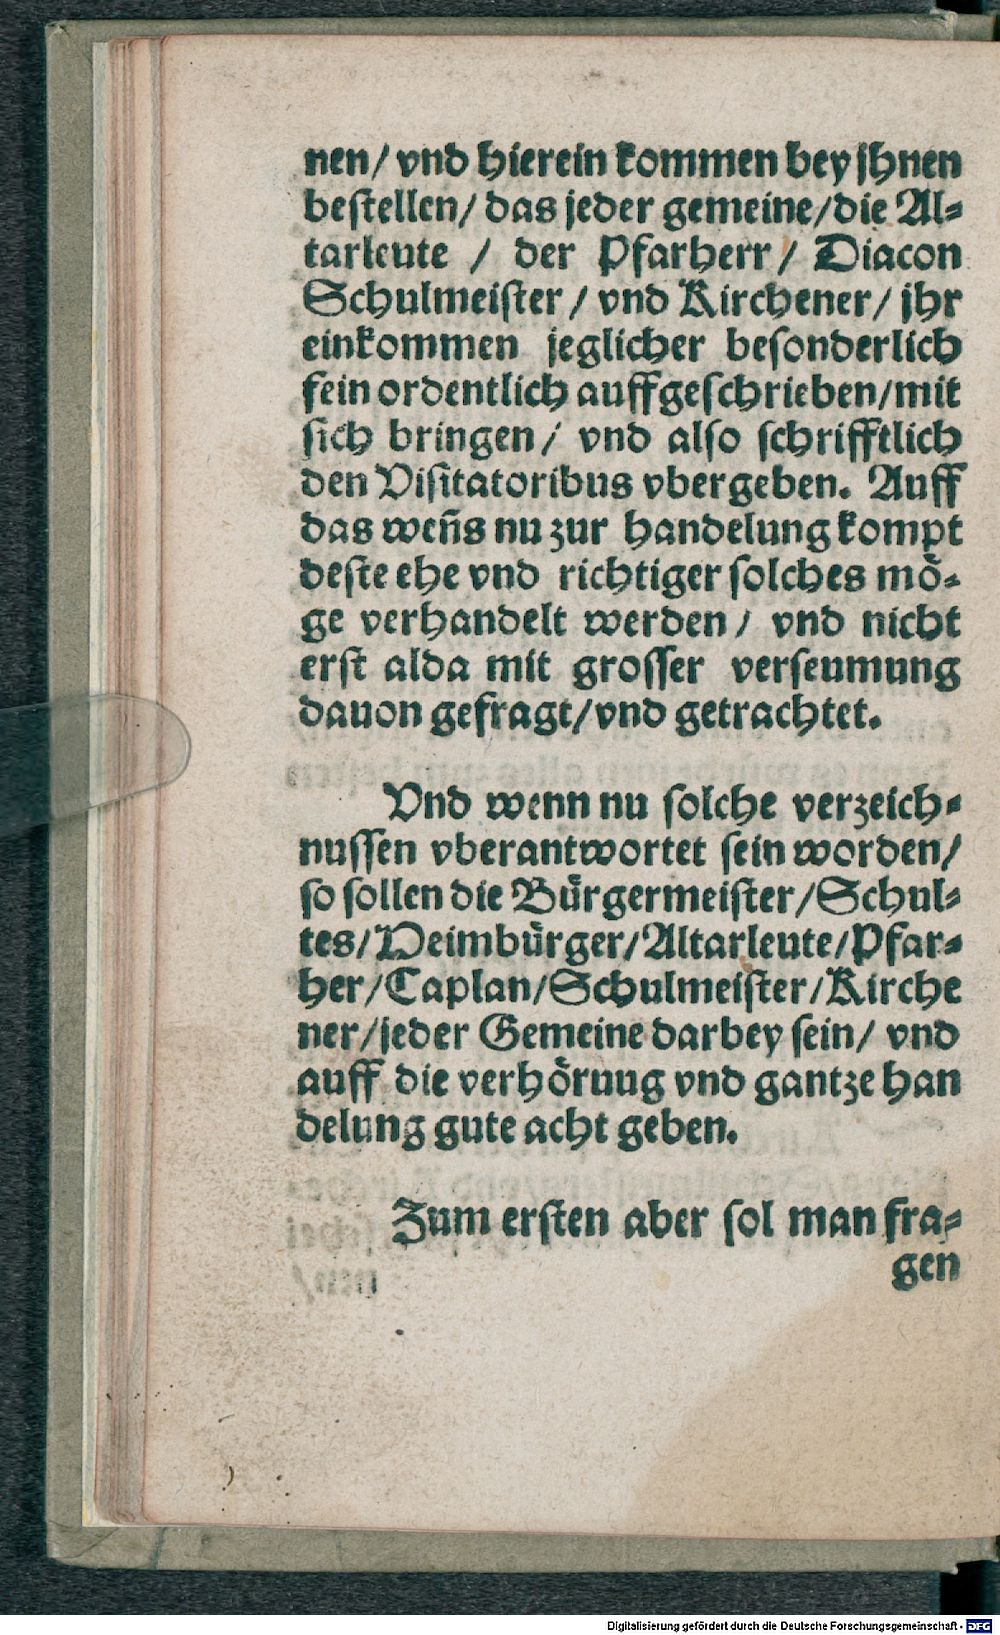 nen/ vnd hierein kommen bey jhnen
bestellen/ das jeder gemeine/die Al-
tarleute / der Pfarherr/ Diacon
Schulmeister/ vnd Kirchener/ jhr
einkommen jeglicher besonderlich
fein ordentlich auffgeschrieben/mit
sich bringen/ vnd also schrifftlich
den Visitatoribus vbergeben. Auff
das weñs nu zur handelung kompt
deste ehe vnd richtiger solches mö-
ge verhandelt werden/ vnd nicht
erst alda mit grosser verseumung
dauon gefragt/vnd getrachtet.
Vnd wenn nu solche verzeich-
nussen vberantwortet sein worden/
so sollen die Bürgermeister/Schul-
tes/Heimbürger/Altarleute/Pfar-
her/Caplan/Schulmeister/Kirche
ner/jeder Gemeine darbey sein/ vnd
auff die verhöruug vnd gantze han
delung gute acht geben.
Zum ersten aber sol man fra-
gen
Digitalisierung gefördert durch die Deutsche Forschungsgemeinschaft - DFG